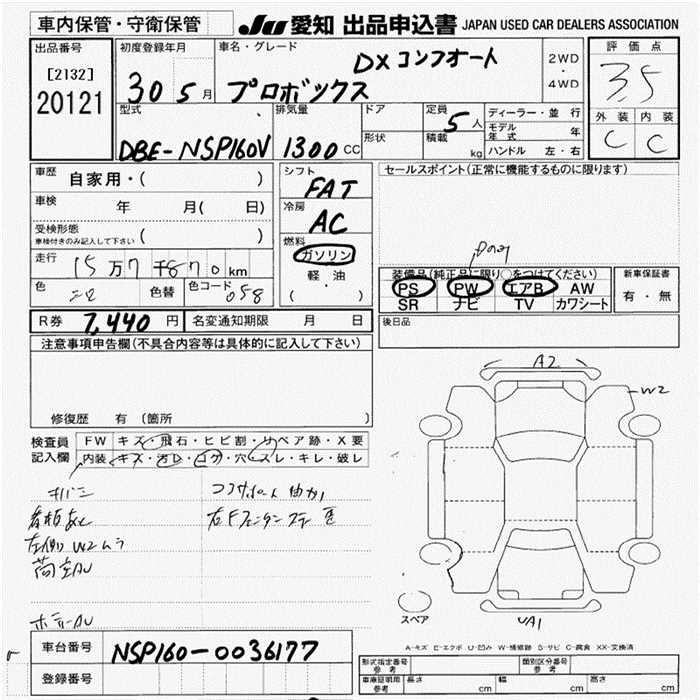 車内保管・守衛保管
JU 愛知 出品申込書 JAPAN USED CAR DEALERS ASSOCIATION
出品番号
[2132]
20121
初度登録年月
30 5月
車名・グレード
DXコンフオート
プロボックス
2WD
・
4WD
評価点
3.5
外装 内装
C C
型式
DBE-NSP160V
排気量
1300CC
ドア
形状
定員
5人
積載
kg
ディーラー・並行
モデル年 年
ハンドル 左・右
車歴
自家用・( )
車検
年 月( 日)
受検形態
車検付きのみ記入して下さい ( )
走行
15万7千870km
色
色替
色コード
058
シフト
FAT
冷房
AC
燃料
ガソリン
軽・油
( )
セールスポイント(正常に機能するものに限ります)
装備品(純正品に限り○をつけてください)
PS PW エアB AW
SR ナビ TV カワシート
新車保証書
有・無
R券 7,440円
名変通知期限 月 日
後日品
注意事項申告欄(不具合内容等は具体的に記入して下さい)
修復歴 有 (箇所
検査員
記入欄
FW キズ・飛石・ヒビ割・リペア跡・X要
内装 キズ・汚レ・コゲ・穴・スレ・キレ・破レ
看板あと
左側W2ムラ
荷室AU
ボデーAU
A2
W2
UA1
スペア
A-キズ E-エクボ U-凹み W-補修跡 S-サビ C-腐食 XX-交換済
車台番号
NSP160-0036177
登録番号
形式指定番号
参考
類別区分番号
参考
車庫証明用
参考
長さ cm
幅 cm
高さ cm